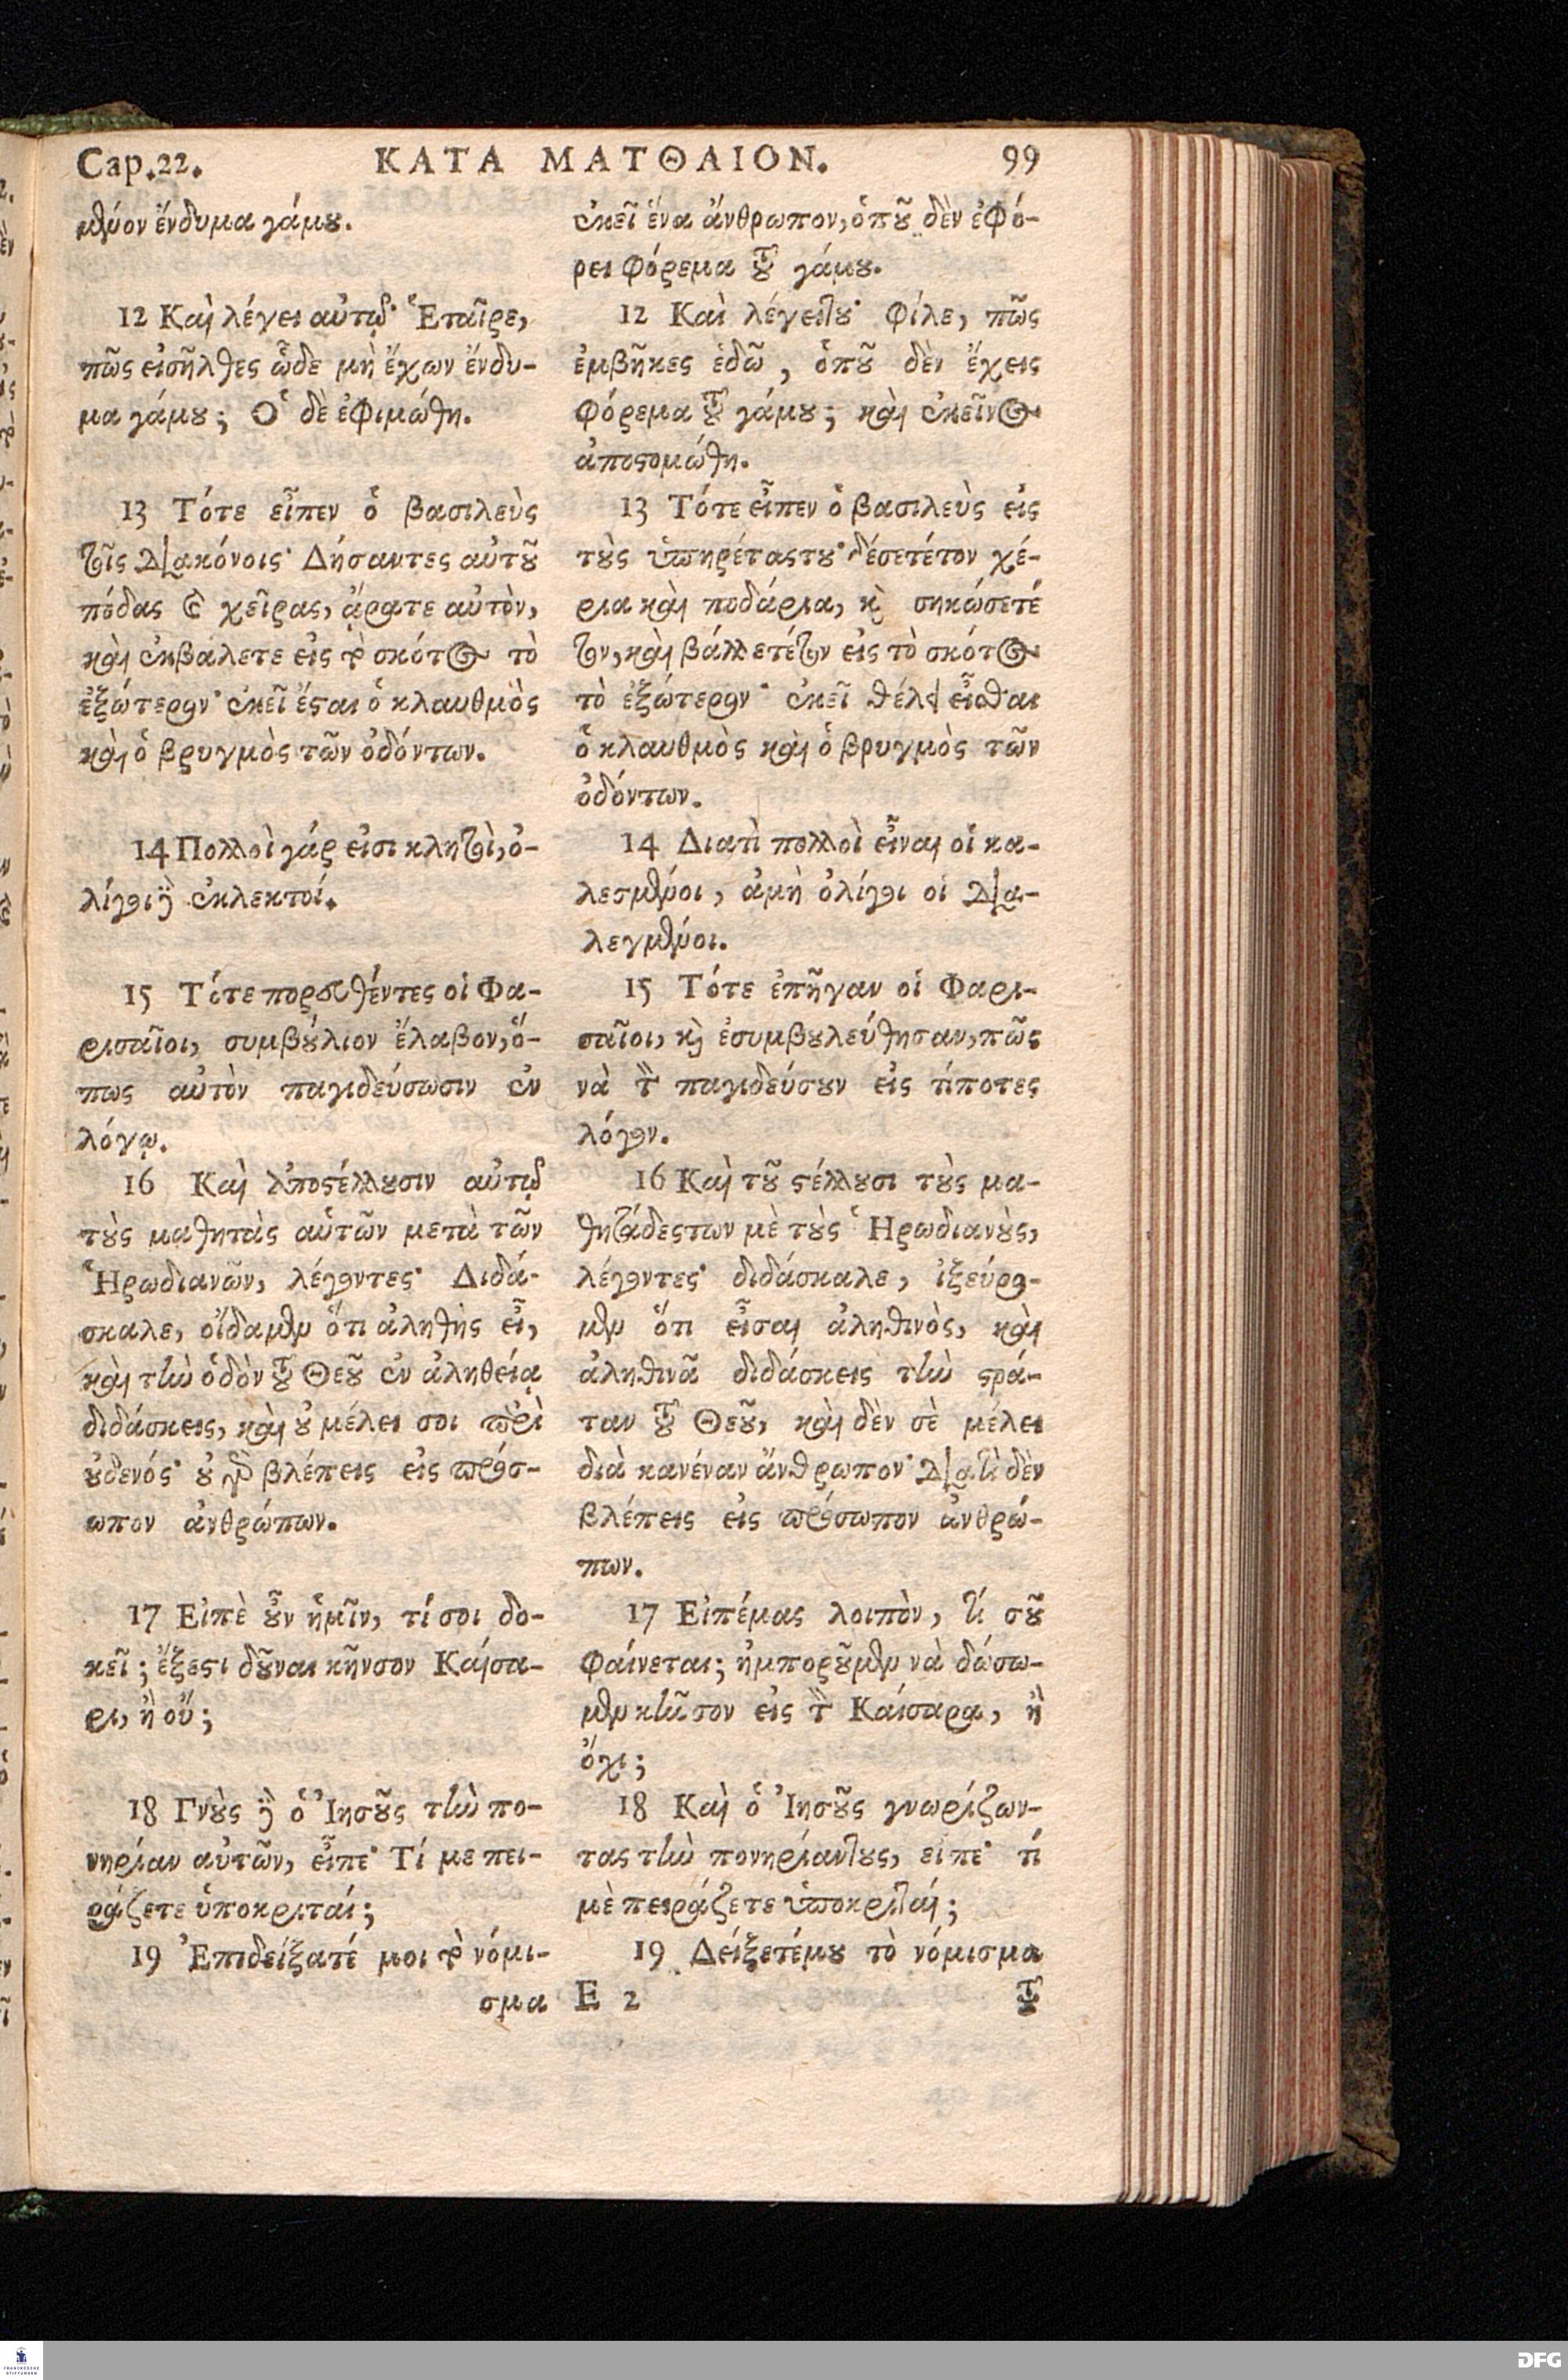 Cap.22.
ΚΑΤΑ ΜΑΤΘΑΙΟΝ.
99
μένον ἔνδυμα γάμου.
12 Καὶ λέγει αὐτῷ· Ἑταῖρε,
πῶς εἰσῆλθες ὧδε μὴ ἔχων ἔνδυ-
μα γάμου; Ὁ δὲ ἐφιμώθη.
13 Τότε εἶπεν ὁ βασιλεὺς
τοῖς διακόνοις· Δήσαντες αὐτοῦ
πόδας καὶ χεῖρας, ἄρατε αὐτὸν,
καὶ ἐκβάλετε εἰς τὸ σκότος τὸ
ἐξώτερον· ἐκεῖ ἔσται ὁ κλαυθμὸς
καὶ ὁ βρυγμὸς τῶν ὀδόντων.
14 Πολλοὶ γάρ εἰσι κλητοὶ, ὀ-
λίγοι δὲ ἐκλεκτοί.
15 Τότε πορευθέντες οἱ Φα-
ρισαῖοι, συμβούλιον ἔλαβον, ὅ-
πως αὐτὸν παγιδεύσωσιν ἐν
λόγῳ.
16 Καὶ ἀποστέλλουσιν αὐτῷ
τοὺς μαθητὰς αὑτῶν μετὰ τῶν
Ἡρωδιανῶν, λέγοντες· Διδά-
σκαλε, οἴδαμεν ὅτι ἀληθὴς εἶ,
καὶ τὴν ὁδὸν τοῦ Θεοῦ ἐν ἀληθείᾳ
διδάσκεις, καὶ οὐ μέλει σοι περὶ
οὐδενός· οὐ γὰρ βλέπεις εἰς πρόσ-
ωπον ἀνθρώπων.
17 Εἰπὲ οὖν ἡμῖν, τί σοι δο-
κεῖ; ἔξεστι δοῦναι κῆνσον Καίσα-
ρι, ἢ οὔ;
18 Γνοὺς δὲ ὁ Ἰησοῦς τὴν πο-
νηρίαν αὐτῶν, εἶπε· Τί με πει-
ράζετε ὑποκριταί;
19 Ἐπιδείξατέ μοι τὸ νόμι-
σμα
ἐκεῖ ἕνα ἄνθρωπον, ὁποῦ δὲν ἐφό-
ρει φόρεμα τοῦ γάμου.
12 Καὶ λέγειτου· Φίλε, πῶς
ἐμβῆκες ἐδῶ, ὁποῦ δὲν ἔχεις
φόρεμα τοῦ γάμου; καὶ ἐκεῖνος
ἀποστομώθη.
13 Τότε εἶπεν ὁ βασιλεὺς εἰς
τοὺς ὑπηρέταςτου· δέσετέτον χέ-
ρια καὶ ποδάρια, καὶ σηκώσετέ
τον, καὶ βάλλετέτον εἰς τὸ σκότος
τὸ ἐξώτερον· ἐκεῖ θέλει εἶσθαι
ὁ κλαυθμὸς καὶ ὁ βρυγμὸς τῶν
ὀδόντων.
14 Διατὶ πολλοὶ εἶναι οἱ κα-
λεσμένοι, ἀμὴ ὀλίγοι οἱ δια-
λεγμένοι.
15 Τότε ἐπῆγαν οἱ Φαρι-
σαῖοι, καὶ ἐσυμβουλεύθησαν, πῶς
νὰ τὸν παγιδεύσουν εἰς τίποτες
λόγον.
16 Καὶ τοῦ στέλλουσι τοὺς μα-
θητάδεςτων μὲ τοὺς Ἡρωδιανοὺς,
λέγοντες· διδάσκαλε, ἰξεύρο-
μεν ὅτι εἶσαι ἀληθινὸς, καὶ
ἀληθινᾶ διδάσκεις τὴν στρά-
ταν τοῦ Θεοῦ, καὶ δὲν σὲ μέλει
διὰ κανέναν ἄνθρωπον· διατὶ δὲν
βλέπεις εἰς πρόσωπον ἀνθρώ-
πων.
17 Εἰπέμας λοιπὸν, τί σοῦ
φαίνεται; ἠμποροῦμεν νὰ δώσω-
μεν κῆνσον εἰς τὸν Καίσαρα, ἢ
ὄχι;
18 Καὶ ὁ Ἰησοῦς γνωρίζων-
τας τὴν πονηρίαντους, εἶπε· τί
μὲ πειράζετε ὑποκριταί;
19 Δείξετέμου τὸ νόμισμα
E 2
τοῦ
FRANCKESCHE STIFTUNGEN
DFG